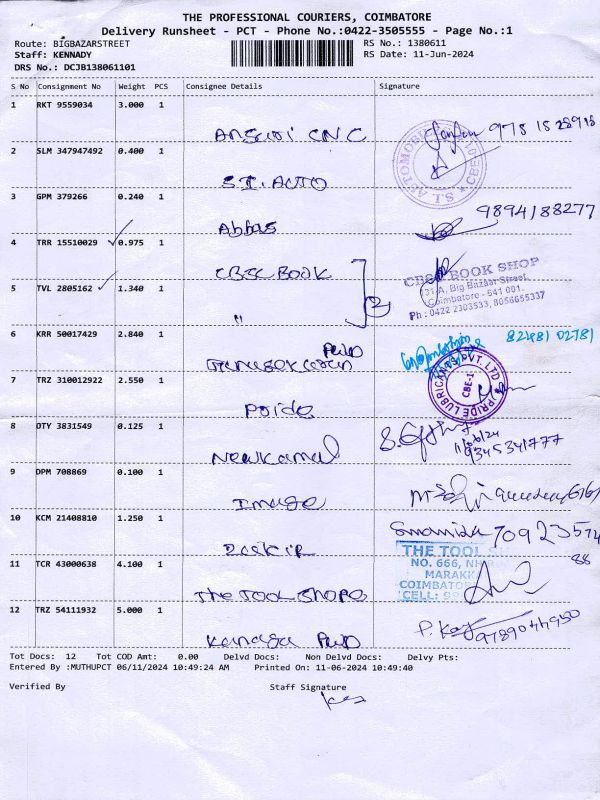 THE PROFESSIONAL COURIERS, COIMBATORE
Delivery Runsheet - PCT - Phone No.:0422-3505555 - Page No.:1
Route: BIGBAZARSTREET RS No.: 1380611
Staff: KENNADY RS Date: 11-Jun-2024
DRS No.: DCJB138061101
S No Consignment No Weight PCS Consignee Details Signature
1 RKT 9559034 3.000 1
CNC
2 SLM 347947492 0.400 1
S.I. AUTO
3 GPM 379266 0.240 1
Abbas 9894188277
4 TRR 15510029 0.975 1
CBSC BOOK
CBSE BOOK SHOP
131-A, Big Bazaar Street,
Coimbatore - 641 001.
Ph : 0422 2303533, 8056655337
5 TVL 2805162 1.340 1
"
6 KRR 50017429 2.840 1
82481 02781
7 TRZ 310012922 2.550 1
PRIDE LUBRICANTS PVT. LTD
CBE-1
8 DTY 3831549 0.125 1
Newkamal
9345341777
9 DPM 708869 0.100 1
Image
10 KCM 21408810 1.250 1
Zakir
11 TCR 43000638 4.100 1
The TOOL SHOPE
THE TOOL
NO. 666,
MARAKK
COIMBATOR
CELL:
12 TRZ 54111932 5.000 1
Kanaga
9789044950
Tot Docs: 12 Tot COD Amt: 0.00 Delvd Docs: Non Delvd Docs: Delvy Pts:
Entered By :MUTHUPCT 06/11/2024 10:49:24 AM Printed On: 11-06-2024 10:49:40
Verified By Staff Signature